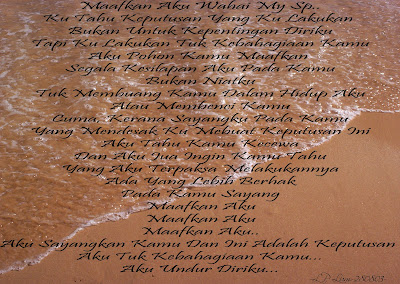 Maafkan Aku Wahai My Sp..
Ku Tahu Keputusan Yang Ku Lakukan
Bukan Untuk Kepentingan Diriku
Tapi Ku Lakukan Tuk Kebahagiaan Kamu
Aku Pohon Kamu Maafkan
Segala Kesilapan Aku Pada Kamu
Bukan Niatku
Tuk Membuang Kamu Dalam Hidup Aku
Atau Membenci Kamu
Cuma, Kerana Sayangku Pada Kamu
Yang Mendesak Ku Mebuat Keputusan Ini
Aku Tahu Kamu Kecewa
Dan Aku Jua Ingin Kamu Tahu
Yang Aku Terpaksa Melakukannya
Ada Yang Lebih Berhak
Pada Kamu Sayang
Maafkan Aku
Maafkan Aku
Maafkan Aku..
Aku Sayangkan Kamu Dan Ini Adalah Keputusan
Aku Tuk Kebahagiaan Kamu...
Aku Undur Diriku...